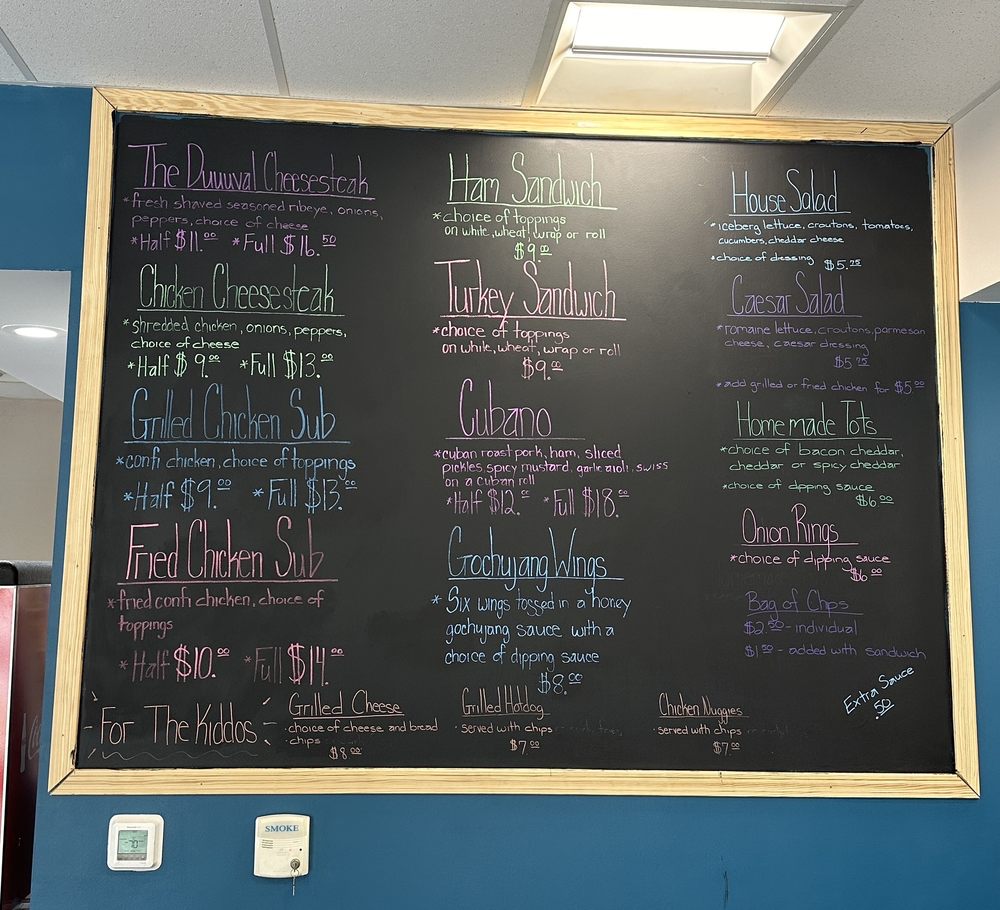 The Duuuval Cheesesteak
*fresh shaved seasoned ribeye, onions,
peppers, choice of cheese
*Half $11.00 *Full $16.50
Chicken Cheesesteak
*shredded chicken, onions, peppers,
choice of cheese
*Half $9.00 *Full $13.00
Grilled Chicken Sub
*confi chicken, choice of toppings
*Half $9.00 *Full $13.00
Fried Chicken Sub
*fried confi chicken, choice of
toppings
*Half $10.00 *Full $14.00
Ham Sandwich
*choice of toppings
on white, wheat, wrap or roll
$9.00
Turkey Sandwich
*choice of toppings
on white, wheat, wrap or roll
$9.00
Cubano
*cuban roast pork, ham, sliced
pickles, spicy mustard, garlic aioli, swiss
on a cuban roll
*Half $12.00 *Full $18.00
Gochujang Wings
* Six wings tossed in a honey
gochujang sauce with a
choice of dipping sauce
$8.00
House Salad
*iceberg lettuce, croutons, tomatoes,
cucumbers, cheddar cheese
*choice of dressing $5.75
Caesar Salad
*romaine lettuce, croutons, parmesan
cheese, caesar dressing
$5.75
*add grilled or fried chicken for $5.00
Homemade Tots
*choice of bacon cheddar,
cheddar or spicy cheddar
*choice of dipping sauce
$6.00
Onion Rings
*choice of dipping sauce
$6.00
Bag of Chips
$2.50 - individual
$1.50 - added with sandwich
Extra Sauce
.50
For The Kiddos
Grilled Cheese
·choice of cheese and bread
·chips
$8.00
Grilled Hotdog
·served with chips
$7.00
Chicken Nuggies
·served with chips
$7.00
SMOKE